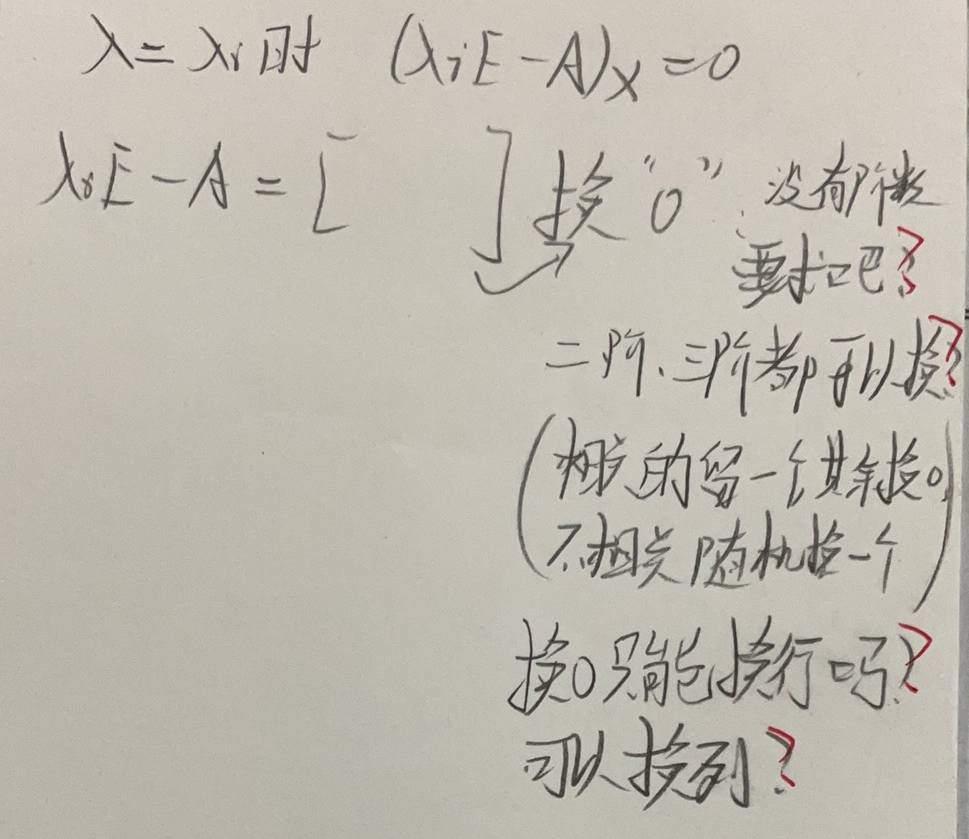 λ=λi时 (λiE-A)x=0
λiE-A=[ ] 换“0”: 没有阶数
要求吧?
二阶、三阶都可以换?
(相关的留一个其余换0,
不相关随机换一个)
换0只能换行吗?
可以换列?